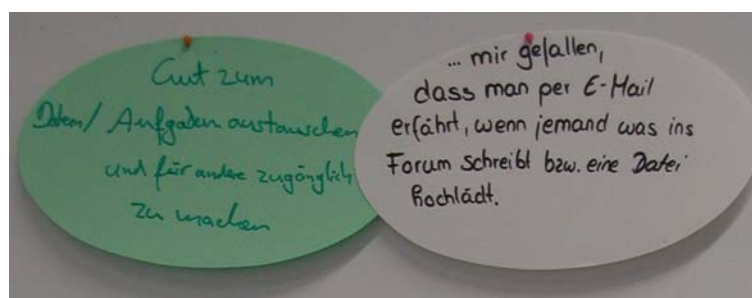 Gut zum
Daten/ Aufgaben austauschen
und für andere zugänglich
zu machen
... mir gefallen,
dass man per E-Mail
erfährt, wenn jemand was ins
Forum schreibt bzw. eine Datei
hochlädt.